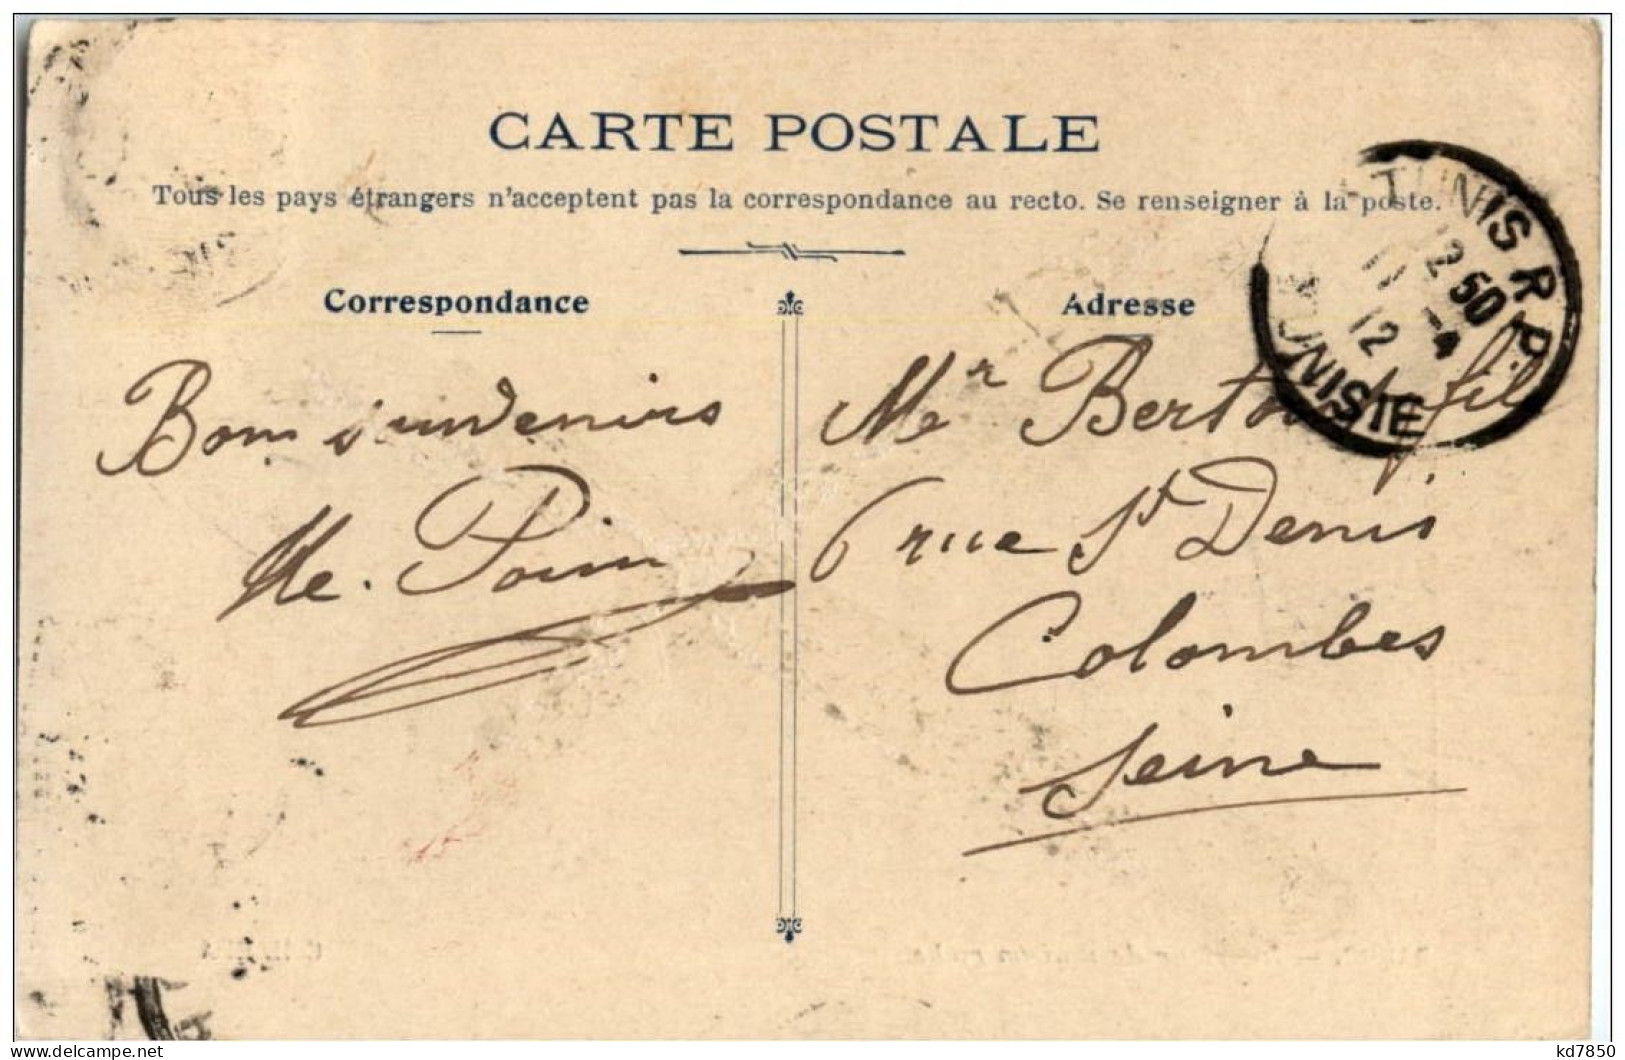 CARTE POSTALE
Tous les pays étrangers n'acceptent pas la correspondance au recto. Se renseigner à la poste.
Correspondance
Bons souvenirs
Adresse
Mr fils
6 rue St Denis
Colombes
Seine
TUNIS R P
2 50
11 -4
12
TUNISIE
kd7850